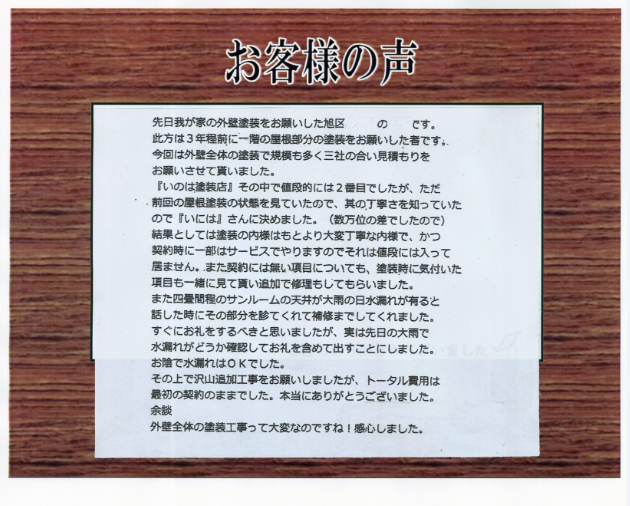 お客様の声
先日我が家の外壁塗装をお願いした旭区　　の　　です。
此方は３年程前に一階の屋根部分の塗装をお願いした者です。
今回は外壁全体の塗装で規模も多く三社の合い見積もりを
お願いさせて貰いました。
『いのは塗装店』その中で値段的には２番目でしたが、ただ
前回の屋根塗装の状態を見ていたので、其の丁寧さを知っていた
ので『いには』さんに決めました。（数万位の差でしたので）
結果としては塗装の内様はもとより大変丁寧な内様で、かつ
契約時に一部はサービスでやりますのでそれは値段には入って
居ません。また契約には無い項目についても、塗装時に気付いた
項目も一緒に見て貰い追加で修理もしてもらいました。
また四畳間程のサンルームの天井が大雨の日水漏れが有ると
話した時にその部分を診てくれて補修までしてくれました。
すぐにお礼をするべきと思いましたが、実は先日の大雨で
水漏れがどうか確認してお礼を含めて出すことにしました。
お陰で水漏れはＯＫでした。
その上で沢山追加工事をお願いしましたが、トータル費用は
最初の契約のままでした。本当にありがとうございました。
余談
外壁全体の塗装工事って大変なのですね！感心しました。